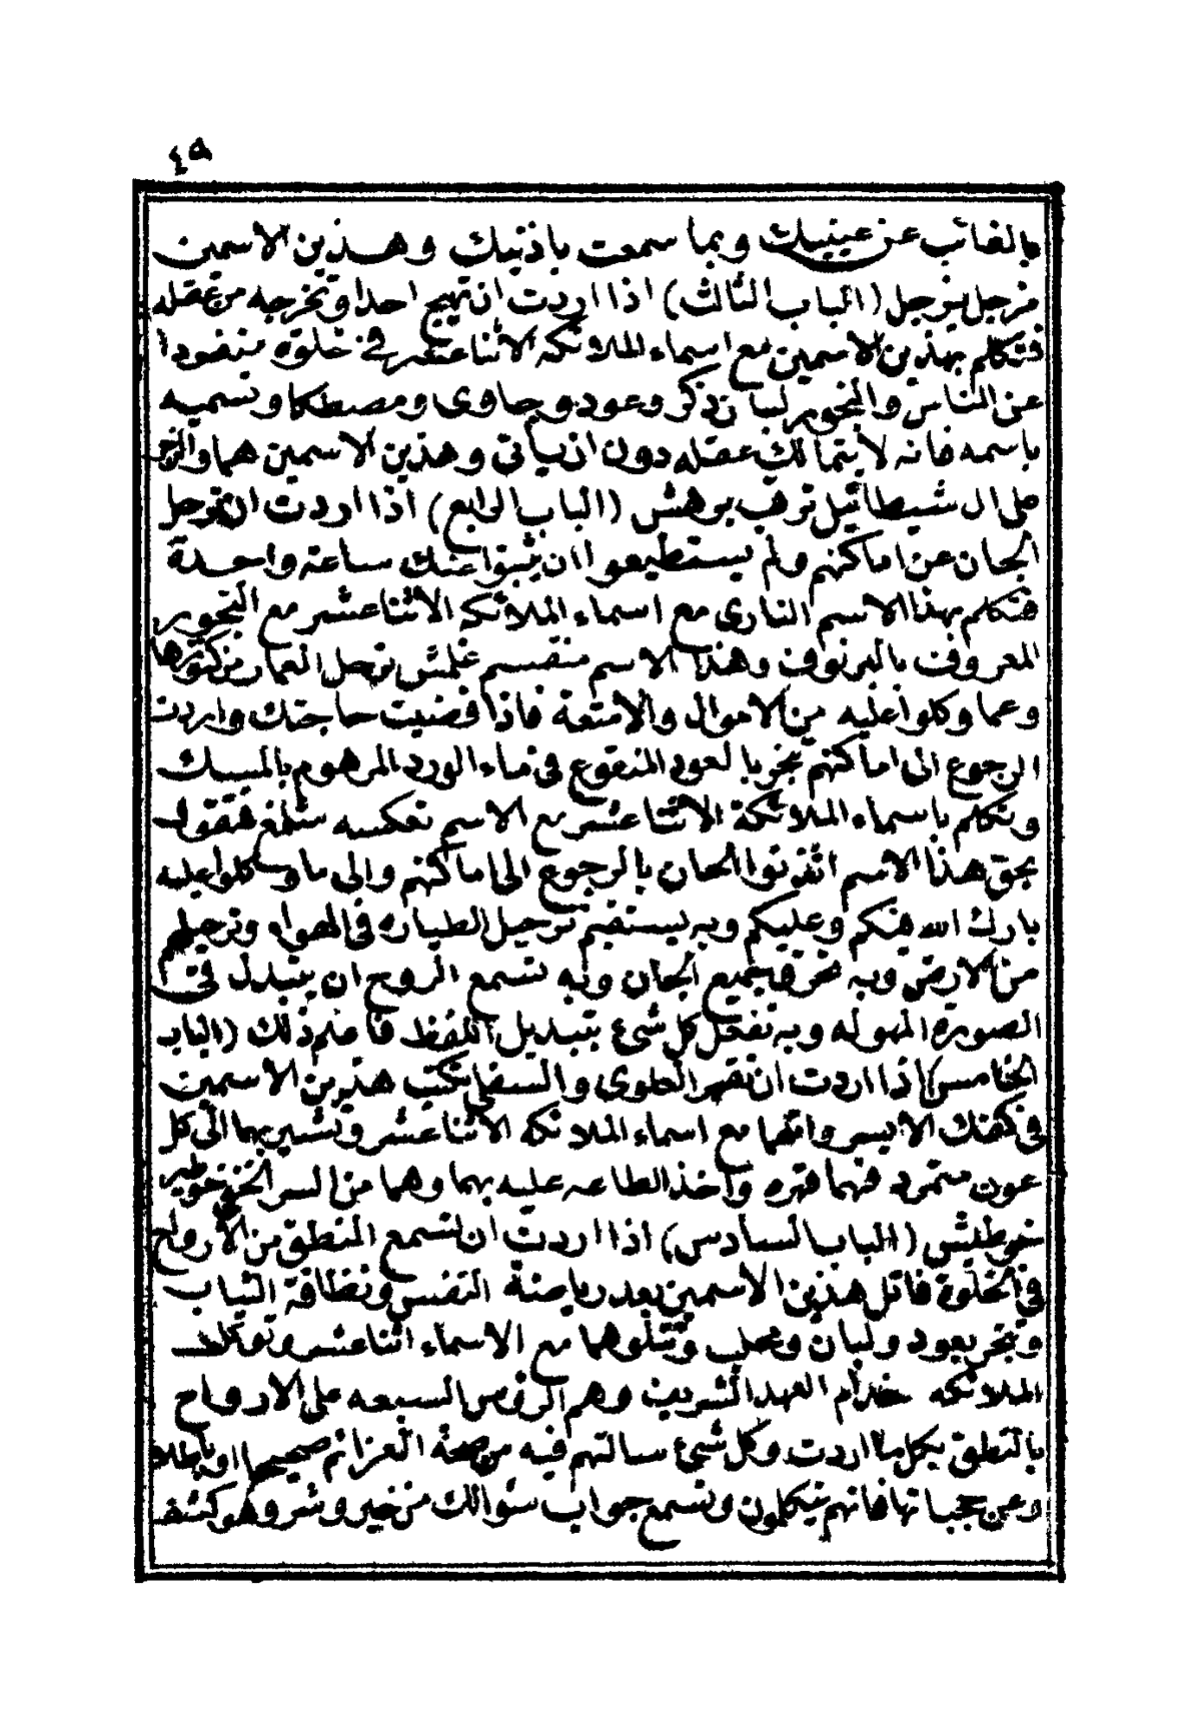 ٤٩
بالغائب عن عينيك وبما سمعت باذنيك وهذين الاسمين
مزجل بزجل (الباب الثالث) اذا اردت ان تهيج احدا وتخرجه من عقله
فتكلم بهذين الاسمين مع اسماء الملائكه الاثنا عشر في خلوه منفردا
عن الناس والبخور لبان ذكر وعود وجاوى ومصطكا وتسميه
باسمه فانه لا يتمالك عقله دون ان يأتى وهذين الاسمين هما
على ال شيطائيل ترقب برهش (الباب الرابع) اذا اردت ان ترحل
الجان عن اماكنهم ولم يستطيعوا ان يثبتوا عنك ساعة واحدة
فتكلم بهذا الاسم النارى مع اسماء الملائكه الاثنا عشر مع البخور
المعروف بالبرنوف وهذا الاسم منقسم غلمش ترحل العمار من كنوزها
وعما وكلوا عليه من الاموال والامتعة فاذا قضيت حاجتك واردت
الرجوع الى اماكنهم تبخر بالعود المنقوع فى ماء الورد المرهوم بالمسك
وتكلم باسماء الملائكة الاثنا عشر مع الاسم تعكسه شلمغ فتقول
بحق هذا الاسم ائذنوا الجان بالرجوع الى اماكنهم والى ما وكلوا عليه
بارك الله فيكم وعليكم وبه يستقيم ترحيل الطياره فى الهواء وترحيلهم
من الارض وبه تحرق جميع الجان وبه تسمع الروح ان يتبدل فى
الصورة المهوله وبه تفعل كل شئ بتبديل اللفظ فاعلم ذلك (الباب
الخامس) اذا اردت ان تقهر العلوى والسفلى تكتب هذين الاسمين
فى كفك الايسر واتلهما مع اسماء الملائكه الاثنا عشر وتشير بهما الى كل
عون متمرد فهما قهره واخذ الطاعه عليه بهما وهما من السر الخفى خوطير
خوطيش (الباب السادس) اذا اردت ان تسمع المنطق من الارواح
فى الخلوة فاتل هذين الاسمين بعد رياضة النفس ونظافة الثياب
وتبخر بعود ولبان ومحلب وتتلوهما مع الاسماء اثنا عشر وتوكل
الملائكه خدام العهد الشريف وهم الرؤس السبعه على الارواح
بالنطق بكل ما اردت وكل شئ سالتهم فيه من صحة العزائم صحيحها او باطلها
وعن حجباتها فانهم يتكلمون وتسمع جواب سئوالك من خير وشر وهو كشف